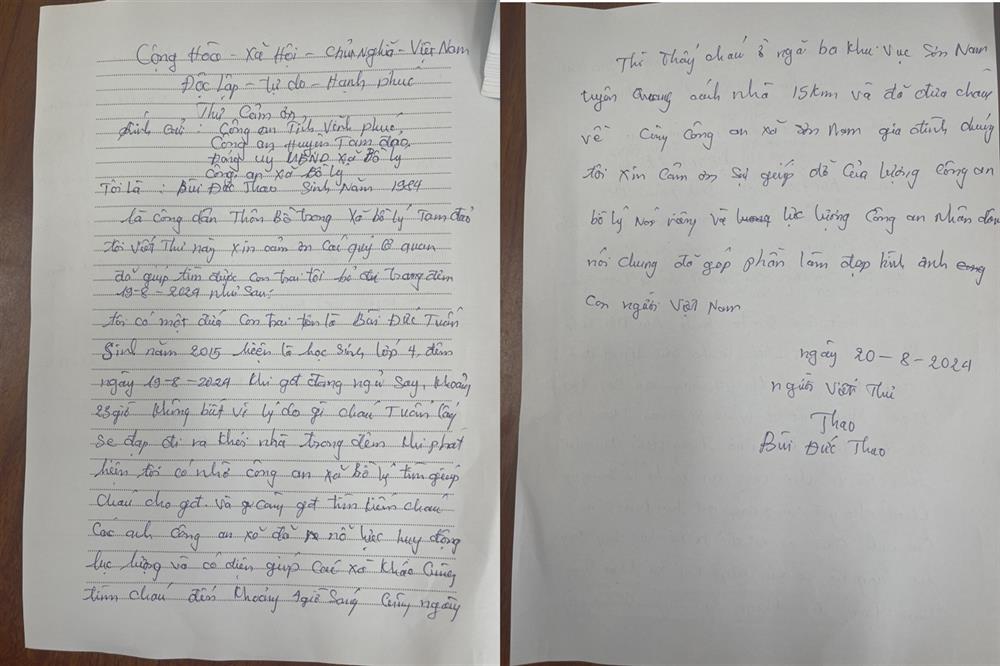 Cộng Hòa - Xã Hội - Chủ Nghĩa - Việt Nam
Độc lập - Tự do - Hạnh phúc
Thư Cảm ơn,
Kính Gửi: Công an Tỉnh Vĩnh phúc,
Công an Huyện Tam đảo,
Đảng uỷ UBND xã Bồ lý
Công an xã Bồ lý
Tôi là: Bùi Đức Thao Sinh Năm 1984
là công dân Thôn Bồ trong xã bồ lý Tam đảo
tôi viết Thư này xin cảm ơn Các quý cơ quan
đã giúp tìm được con trai tôi bỏ đi trong đêm
19-8-2024 như sau:
tôi có một đứa con trai tên là Bùi Đức Tuấn
Sinh năm 2015 hiện là học sinh lớp 4, đêm
ngày 19-8-2024 khi gđ đang ngủ say, khoảng
23 giờ không biết vì lý do gì cháu Tuấn lấy
xe đạp đi ra khỏi nhà trong đêm khi phát
hiện tôi có nhờ công an xã Bồ lý tìm giúp
cháu cho gđ. và cùng gđ tìm kiếm cháu
Các anh công an xã đã nỗ lực huy động
lực lượng và có điện giúp các xã khác cùng
tìm cháu đến khoảng 4 giờ sáng cùng ngày
Thì Thấy cháu ở ngã ba khu vực Sơn Nam
tuyên Quang cách nhà 15km và đã đưa cháu
về Cùng Công an xã Sơn Nam gia đình chúng
tôi xin cảm ơn sự giúp đỡ của lượng công an
bồ lý nói riêng và lực lượng Công an nhân dân
nói chung đã góp phần làm đẹp hình ảnh
Con người Việt Nam
ngày 20-8-2024
người viết Thư
Thao
Bùi Đức Thao